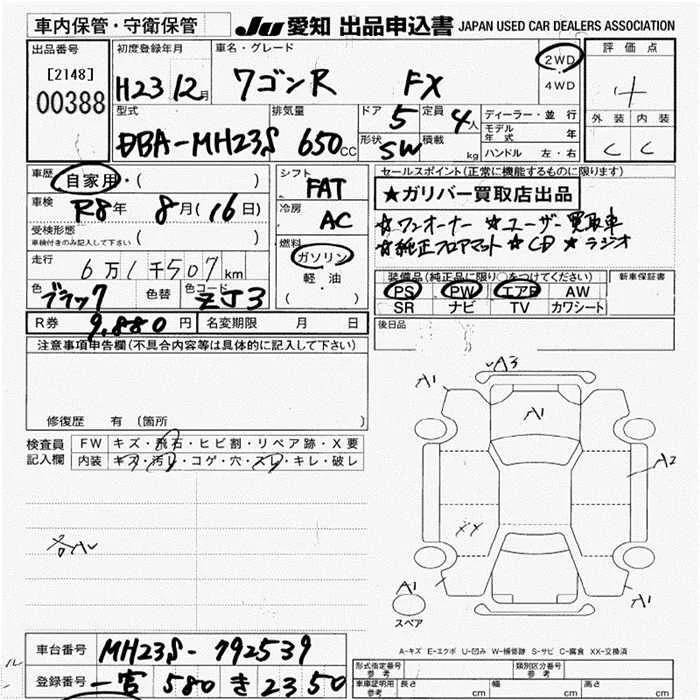 車内保管・守衛保管
JU 愛知 出品申込書 JAPAN USED CAR DEALERS ASSOCIATION
出品番号
[2148]
00388
初度登録年月
H23 12月
車名・グレード
ワゴンR FX
2WD
・
4WD
評価点
4
外装 内装
C C
型式
DBA-MH23S
排気量
650cc
ドア 5
定員 4人
形状 SW
積載 kg
ディーラー・並行
モデル年式 年
ハンドル 左・右
車歴 自家用・( )
車検 R8年 8月(16日)
受検形態
車検付きのみ記入して下さい ( )
走行 6万1千507km
色 ブラック 色替 色コード ZJ3
R券 9,880円 名変期限 月 日
シフト FAT
冷房 AC
燃料
ガソリン
軽・油
( ・ )
セールスポイント(正常に機能するものに限ります)
★ガリバー買取店出品
☆ワンオーナー ☆ユーザー買取車
☆純正フロアマット ☆CD ☆ラジオ
装備品(純正品に限り○をつけてください)
PS PW エアB AW
SR ナビ TV カワシート
新車保証書
後日品
注意事項申告欄(不具合内容等は具体的に記入して下さい)
修復歴 有 (箇所 )
検査員記入欄
FW キズ・飛石・ヒビ割・リペア跡・X要
内装 キズ・汚レ・コゲ・穴・スレ・キレ・破レ
A1
A3
A1
A2
XX
A1
A1
スペア
A-キズ E-エクボ U-凹み W-補修跡 S-サビ C-腐食 XX-交換済
車台番号 MH23S-792539
登録番号 一宮 580 き 2350
形式指定番号 参考
類別区分番号 参考
車庫証明用 参考
長さ cm
幅 cm
高さ cm